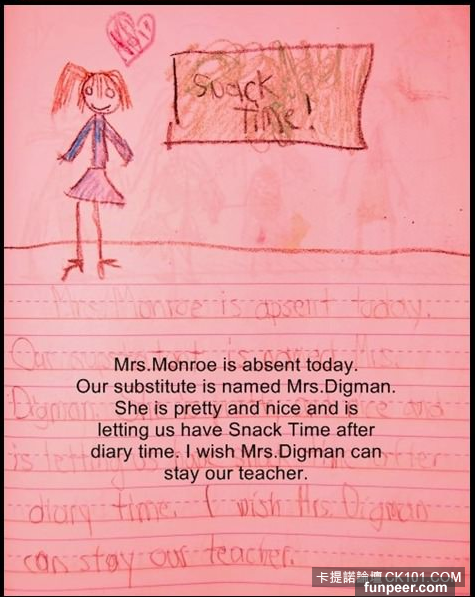 Snack
Time!
Mrs. Monroe is apsent today.
Our Mrs.
Mrs.Monroe is absent today.
Our substitute is named Mrs.Digman.
She is pretty and nice and is
letting us have Snack Time after
diary time. I wish Mrs.Digman can
stay our teacher.
Digman. nice and
is letting us after
diary time. I wish Mrs. Digman
can stay our teacher.
卡提諾論壇 CK101.COM
funpeer.com